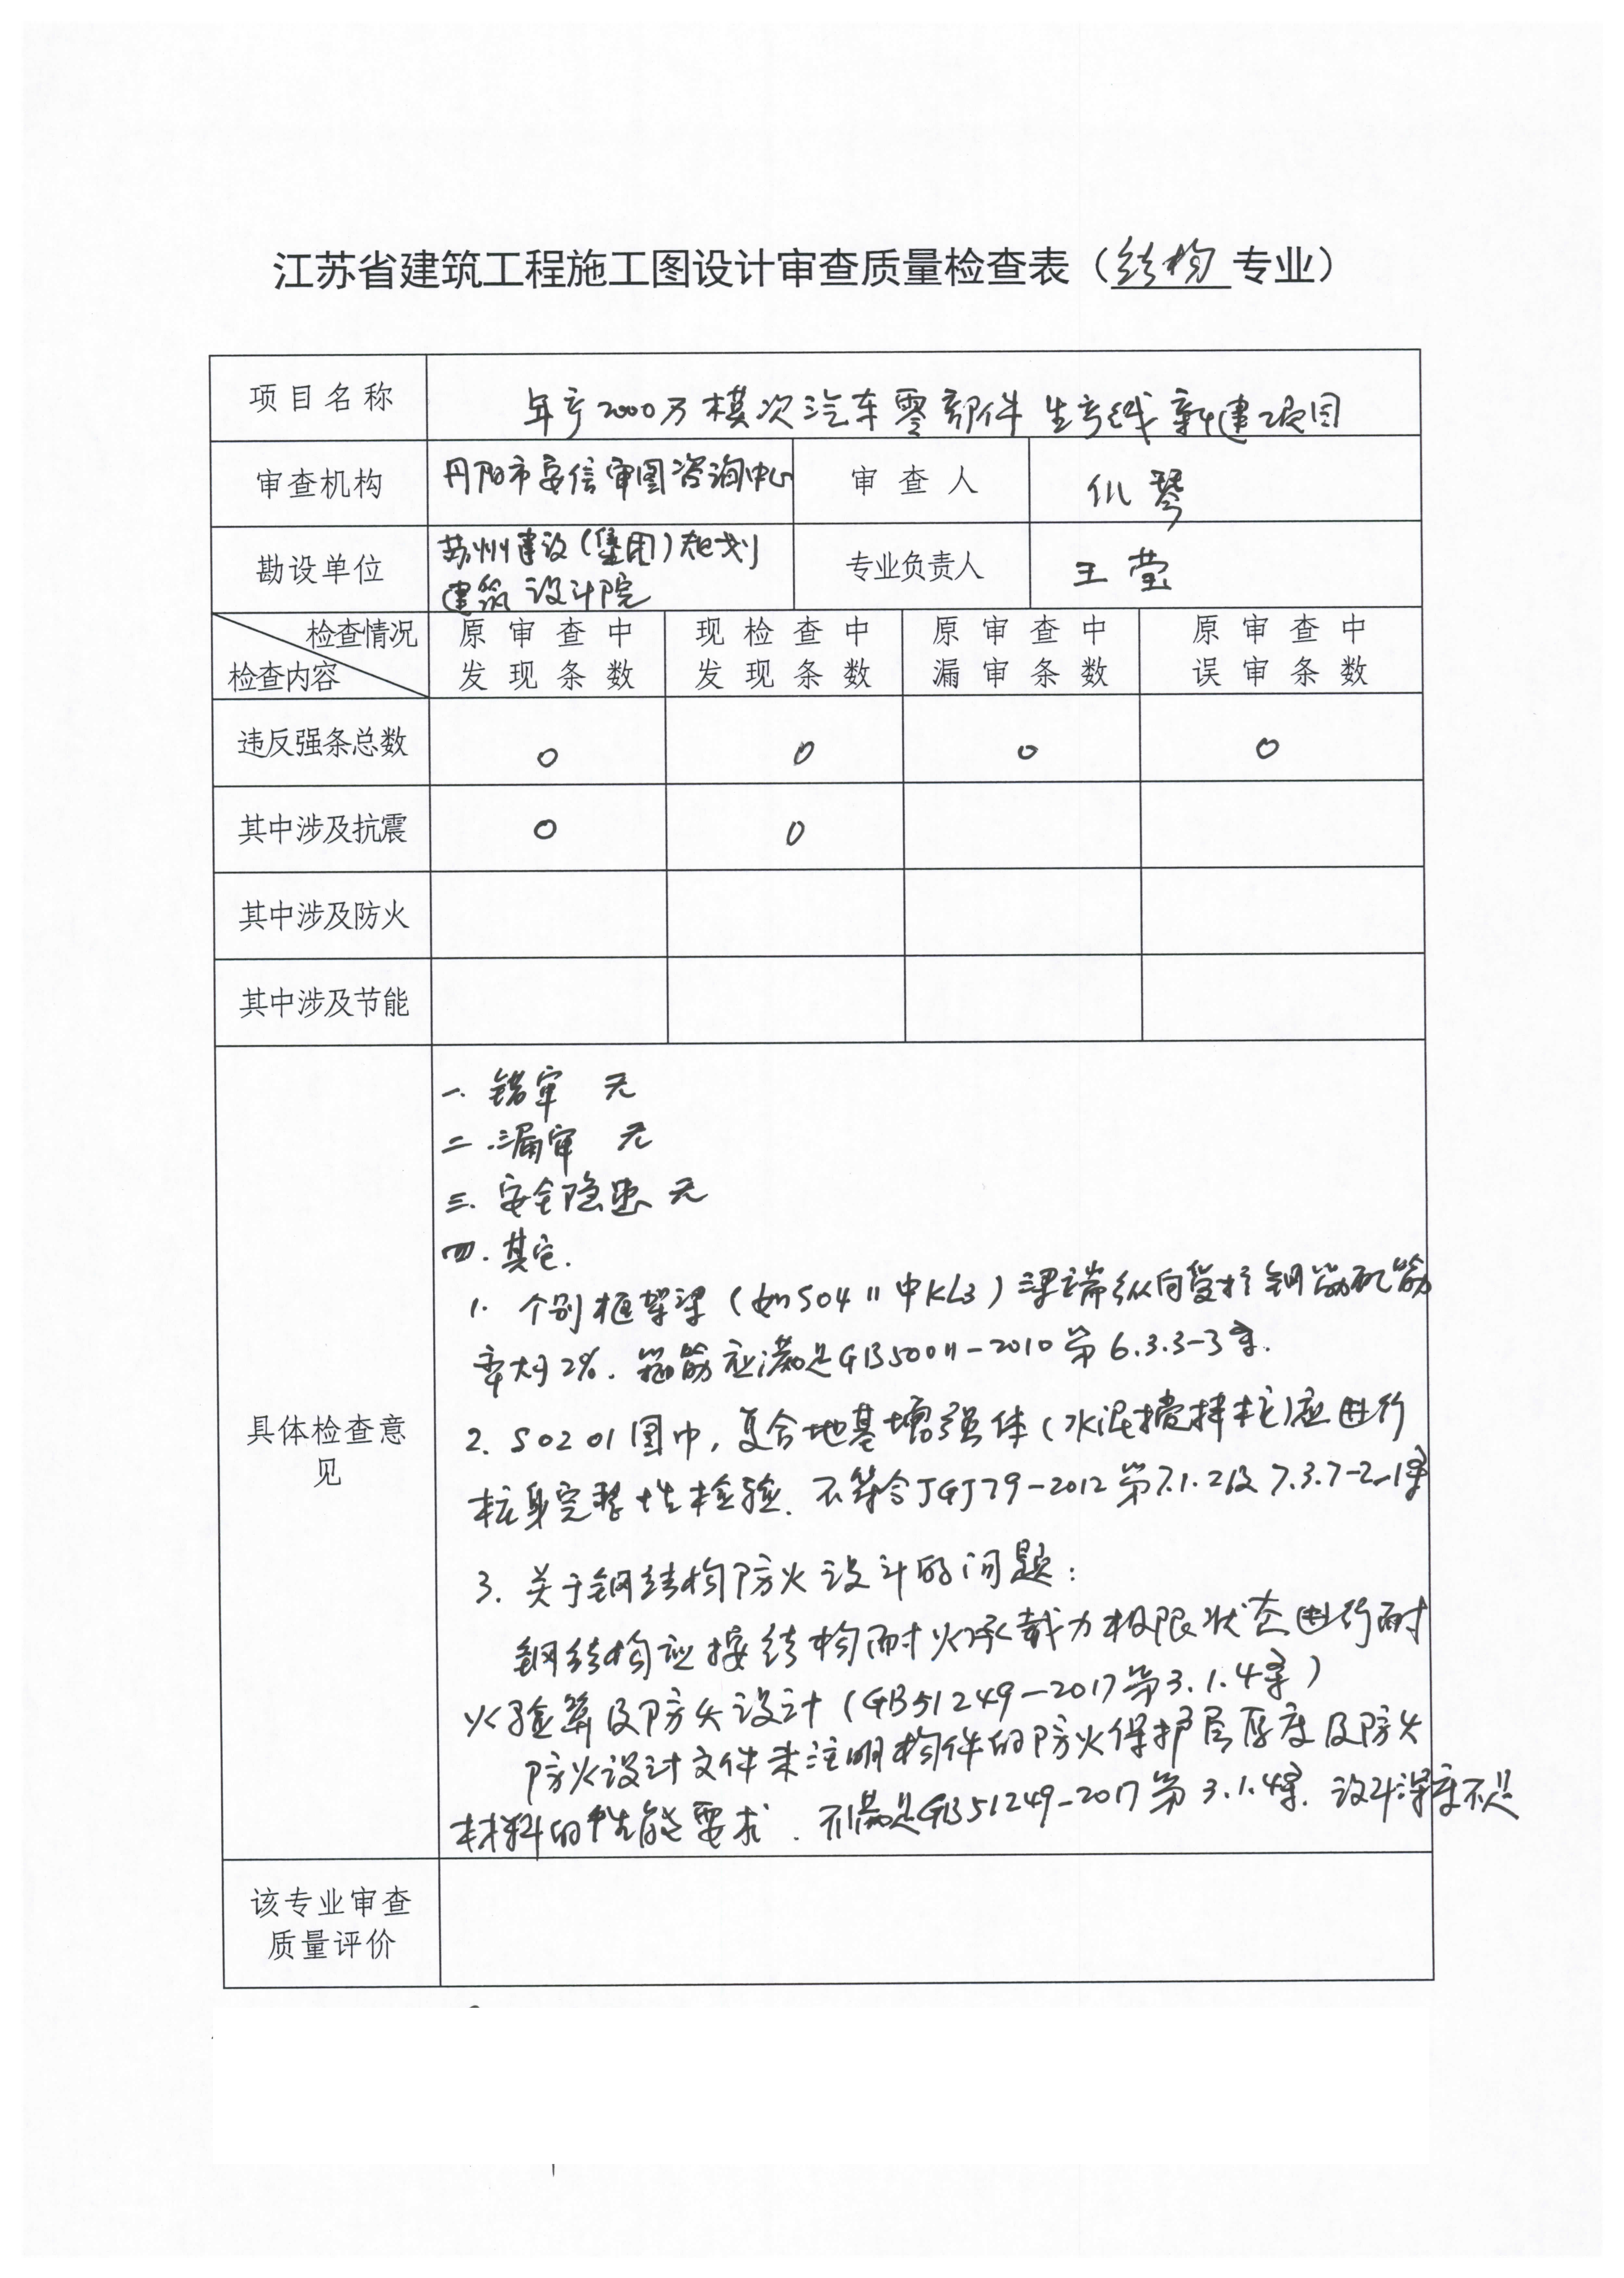 江苏省建筑工程施工图设计审查质量检查表（结构 专业）
项目名称 年产2000万模次汽车零部件生产线新建项目
审查机构 丹阳市安信审图咨询中心 审查人 仉琴
勘设单位 苏州建设（集团）规划
建筑设计院 专业负责人 王莹
检查情况
检查内容
原审查中
发现条数
现检查中
发现条数
原审查中
漏审条数
原审查中
误审条数
违反强条总数 0 0 0 0
其中涉及抗震 0 0
其中涉及防火
其中涉及节能
具体检查意
见
一. 错审 无
二. 漏审 无
三. 安全隐患 无
四. 其它.
1. 个别框架梁（如S0411中KL3）梁端纵向受拉钢筋配筋
率大于2%. 箍筋应满足GB50011-2010第6.3.3-3条.
2. S0201图中, 复合地基增强体（水泥搅拌桩）应进行
桩身完整性检验. 不符合JGJ79-2012第7.1.2及7.3.7-2-1条
3. 关于钢结构防火设计的问题:
钢结构应按结构耐火承载力极限状态进行耐
火验算及防火设计（GB51249-2017第3.1.4条）
防火设计文件未注明构件的防火保护层厚度及防火
材料的性能要求. 不满足GB51249-2017第3.1.4条. 设计深度不足
该专业审查
质量评价